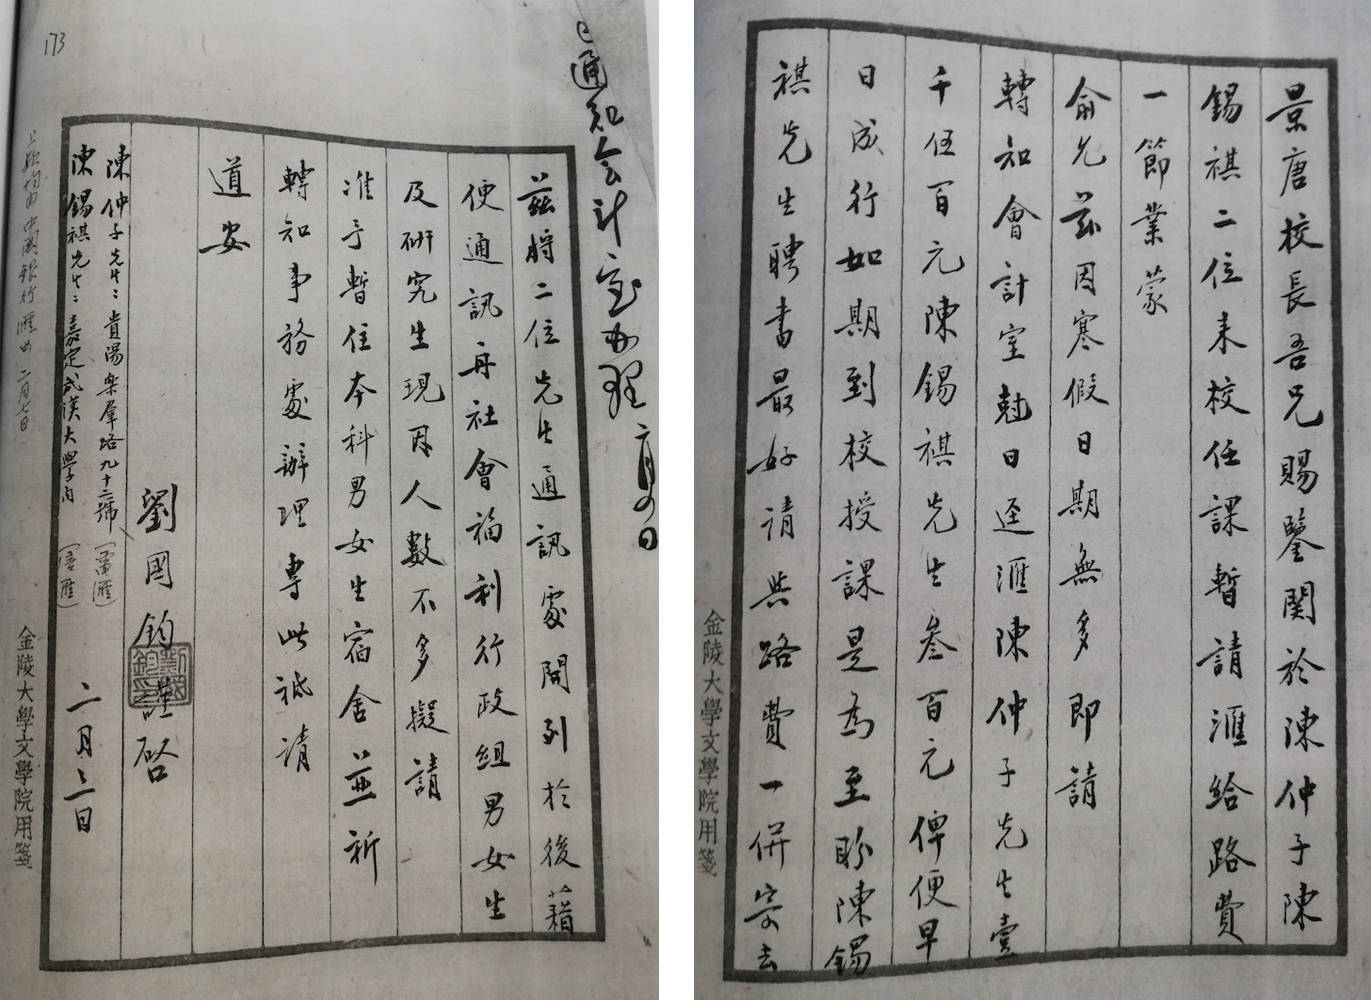 景唐校長吾兄賜鑒關於陳仲子陳
錫祺二位來校任課暫請滙給路費
一節業蒙
俞允茲因寒假日期無多即請
轉知會計室尅日逕滙陳仲子先生壹
千伍百元陳錫祺先生叁百元俾便早
日成行如期到校授課是為至盼陳錫
祺先生聘書最好請與路費一併寄去
金陵大學文學院用箋
已通知会计室办理
茲將二位先生通訊處開列於後藉
便通訊再社會福利行政組男女生
及研究生現因人數不多擬請
准予暫住本科男女生宿舍並祈
轉知事務處辦理專此祗請
道安
劉國鈞謹啓
二月三日
陳仲子先生：貴陽樂羣路九十二號（電滙）
陳錫祺先生：嘉定武漢大學內（信滙）
上款均由中國銀行滙出 二月七日
金陵大學文學院用箋
173